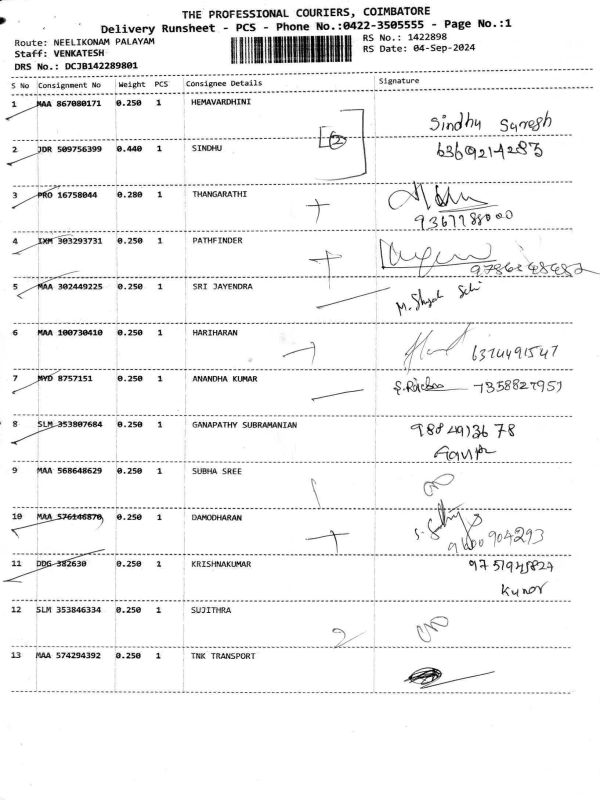 THE PROFESSIONAL COURIERS, COIMBATORE
Delivery Runsheet - PCS - Phone No.:0422-3505555 - Page No.:1
Route: NEELIKONAM PALAYAM
RS No.: 1422898
Staff: VENKATESH
RS Date: 04-Sep-2024
DRS No.: DCJB142289801
S No Consignment No Weight PCS Consignee Details Signature
1 MAA 867080171 0.250 1 HEMAVARDHINI
Sindhu Suresh
2 JDR 509756399 0.440 1 SINDHU 2 6369214283
3 PRO 16758044 0.280 1 THANGARATHI
9367788000
4 IXM 303293731 0.250 1 PATHFINDER
9786848482
5 MAA 302449225 0.250 1 SRI JAYENDRA
6 MAA 100730410 0.250 1 HARIHARAN
6374491547
7 MYD 8757151 0.250 1 ANANDHA KUMAR 7358827951
8 SLM 353807684 0.250 1 GANAPATHY SUBRAMANIAN 9884913678
9 MAA 568648629 0.250 1 SUBHA SREE
10 MAA 576146870 0.250 1 DAMODHARAN
9600904293
11 DDG 382630 0.250 1 KRISHNAKUMAR 9751945827
Kumar
12 SLM 353846334 0.250 1 SUJITHRA
13 MAA 574294392 0.250 1 TNK TRANSPORT